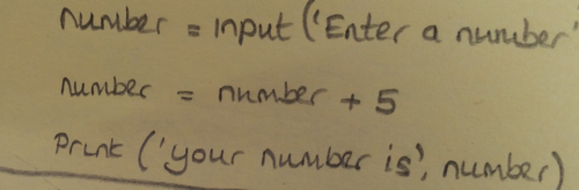 number = input ('Enter a number'
number = number + 5
Print ('your number is', number)